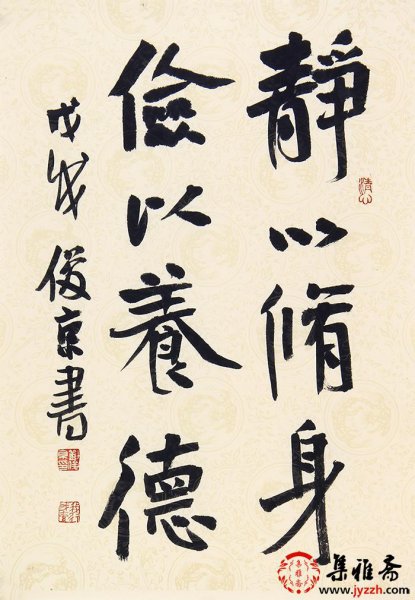 靜以脩身
儉以養德
戊戌 俊京書
集雅斋
www.jyzzh.com